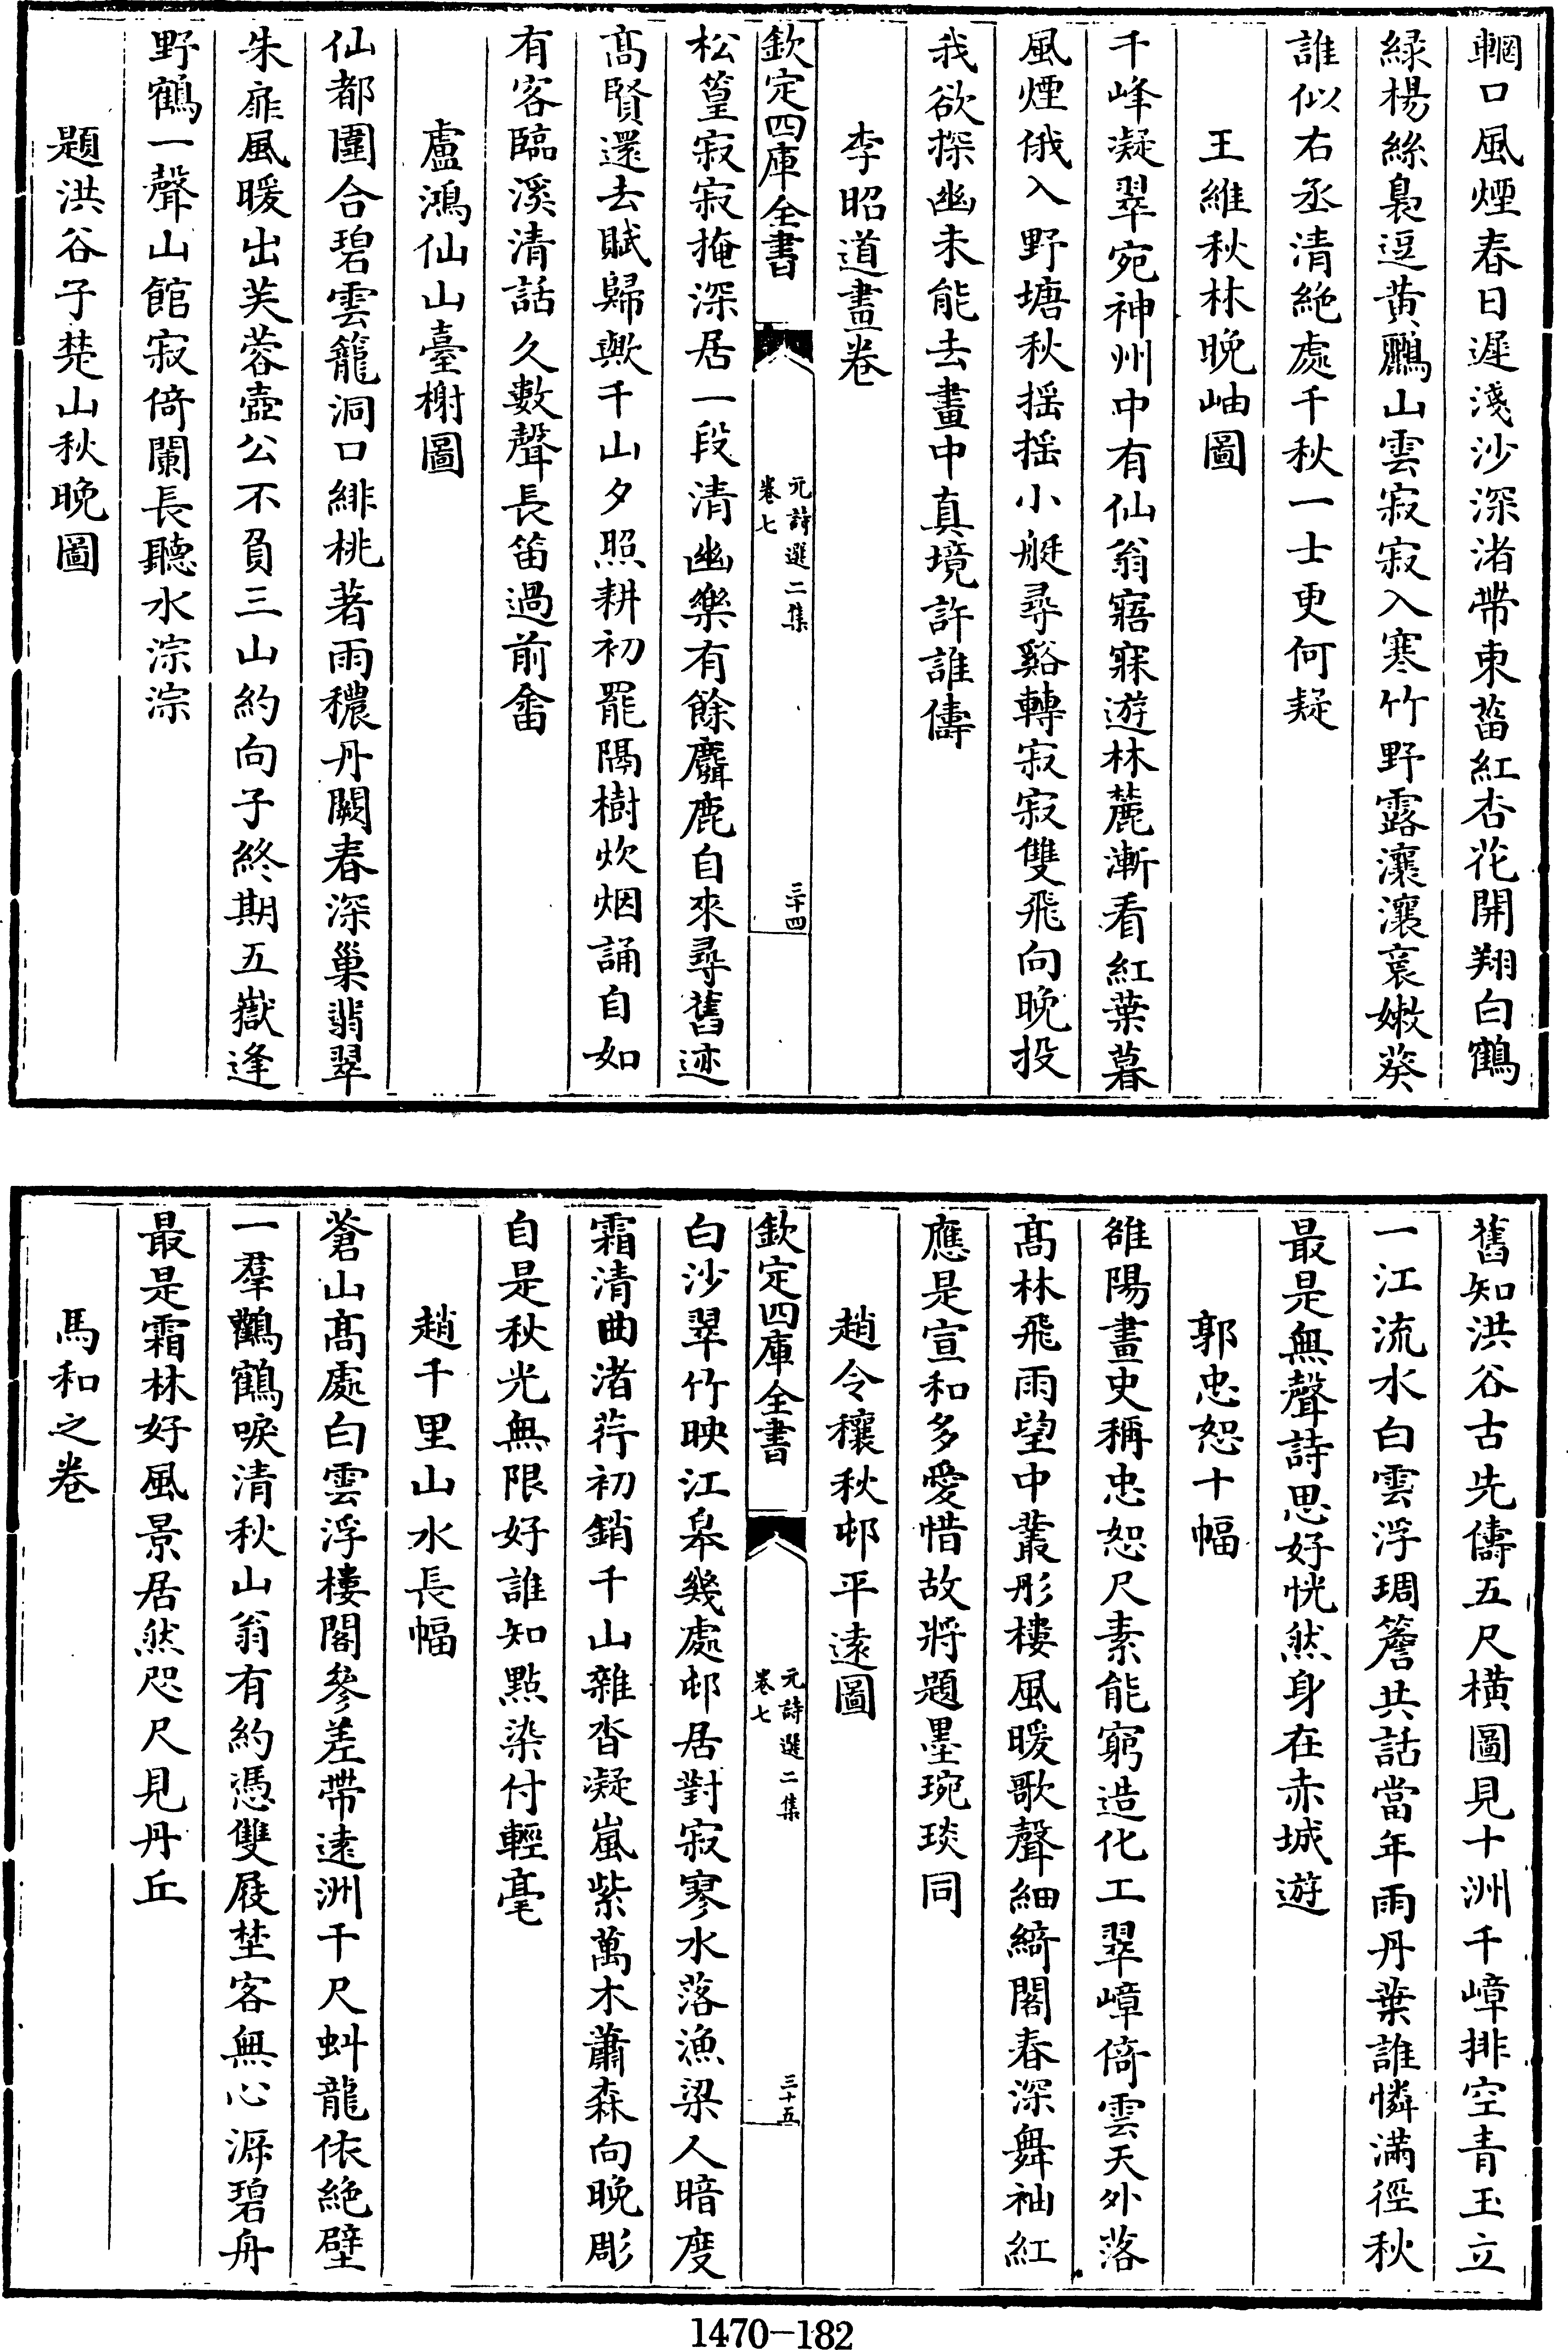 輞口風煙春日遲淺沙深渚帶東菑紅杏花開翔白鶴
緑楊絲裊逗黄鸝山雲寂寂入寒竹野露瀼瀼裛嫩葵
誰似右丞清絶處千秋一士更何疑
王維秋林晚岫圖
千峰凝翠宛神州中有仙翁寤寐遊林麓漸看紅葉暮
風煙俄入野塘秋揺揺小艇尋谿轉寂寂雙飛向晚投
我欲探幽未能去畫中真境許誰儔
李昭道畫卷
欽定四庫全書
元詩選二集
卷七
三十四
松篁寂寂掩深居一段清幽樂有餘麛鹿自來尋舊迹
髙賢還去賦歸歟千山夕照耕初罷隔樹炊烟誦自如
有客臨溪清話久數聲長笛過前畬
盧鴻仙山臺榭圖
仙都圍合碧雲籠洞口緋桃著雨穠丹闕春深巢翡翠
朱扉風暖出芙蓉壺公不負三山約向子終期五嶽逢
野鶴一聲山館寂倚闌長聽水淙淙
題洪谷子楚山秋晚圖
舊知洪谷古先儔五尺橫圖見十洲千嶂排空青玉立
一江流水白雲浮琱簷共話當年雨丹葉誰憐滿徑秋
最是無聲詩思好恍然身在赤城遊
郭忠恕十幅
雒陽畫史稱忠恕尺素能窮造化工翠嶂倚雲天外落
髙林飛雨望中叢彤樓風暖歌聲細綺閣春深舞袖紅
應是宣和多愛惜故將題墨琬琰同
趙令穰秋邨平逺圖
欽定四庫全書
元詩選二集
卷七
三十五
白沙翠竹映江皋幾處邨居對寂寥水落漁梁人暗度
霜清曲渚荇初銷千山雜沓凝嵐紫萬木蕭森向晚彫
自是秋光無限好誰知點染付輕毫
趙千里山水長幅
蒼山髙處白雲浮樓閣參差帶逺洲千尺虯龍依絶壁
一羣鸛鶴唳清秋山翁有約憑雙屐埜客無心泝碧舟
最是霜林好風景居然咫尺見丹丘
馬和之卷
1470-182